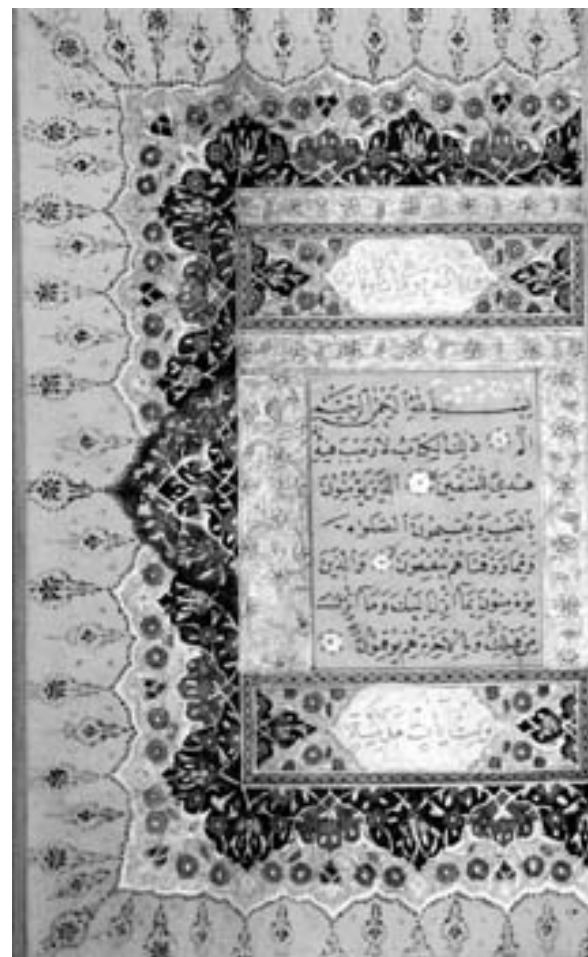 بسم الله الرحمن الرحيم
الم ذلك الكتاب لا ريب فيه
هدى للمتقين الذين يؤمنون
بالغيب ويقيمون الصلوة
ومما رزقناهم ينفقون والذين
يؤمنون بما أنزل إليك وما أنزل
من قبلك وبالآخرة هم يوقنون
وست آيات مدنية